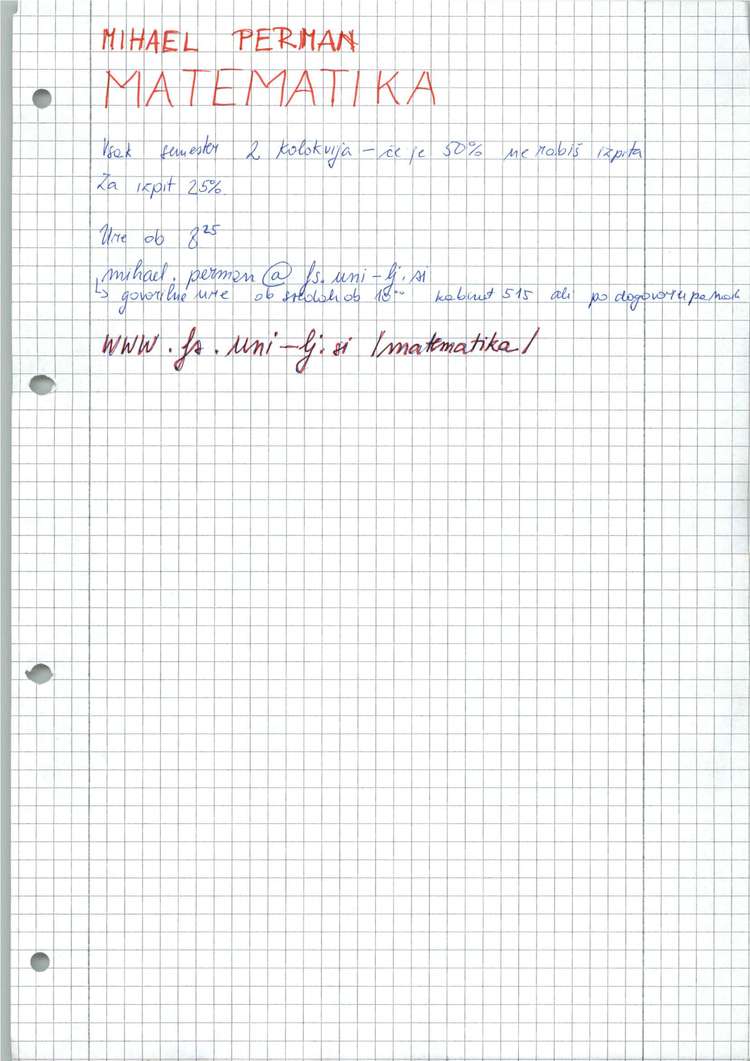 MIHAEL PERMAN
MATEMATIKA
Vsak semester 2 kolokvija – če je 50% ne rabiš izpita
Za izpit 25%
Ure ob 8²⁵
mihael.perman@fs.uni-lj.si
↳ govorilne ure ob sredah ob kabinet 515 ali po dogovoru
www.fs.uni-lj.si/matematika/